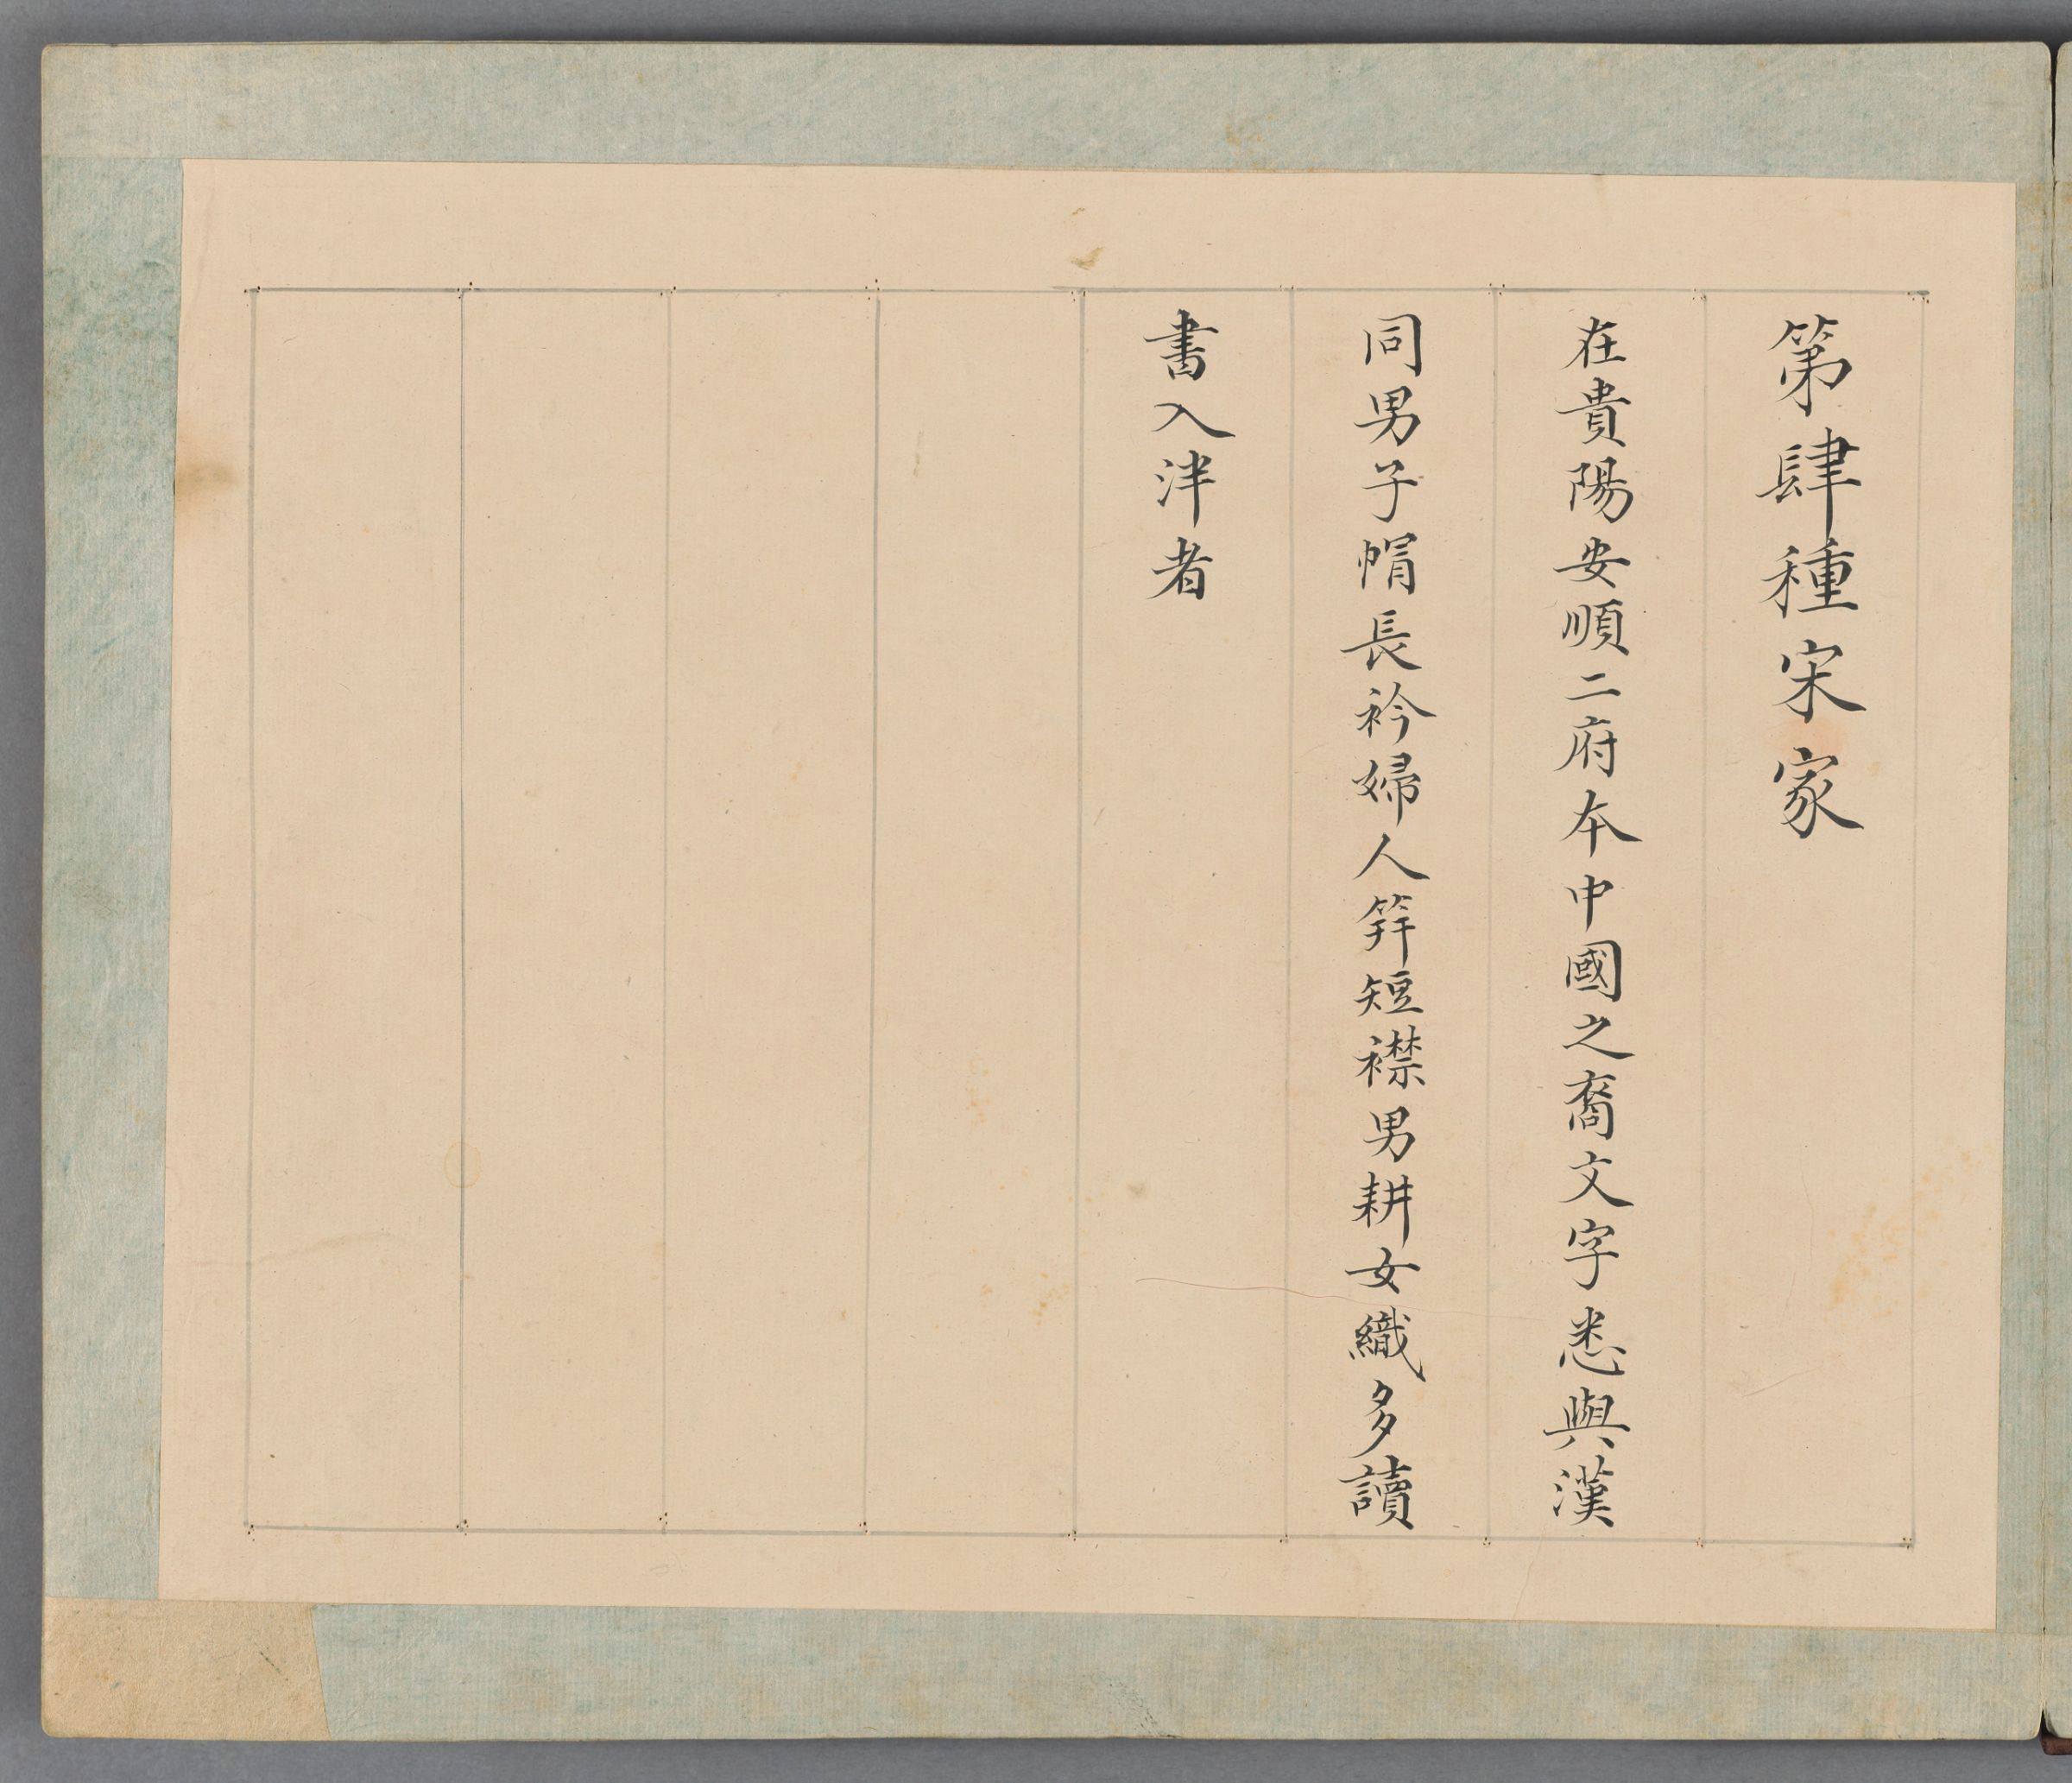 第肆種宋家
在貴陽安順二府本中國之裔文字悉與漢
同男子帽長衿婦人笄短襟男耕女織多讀
書入泮者